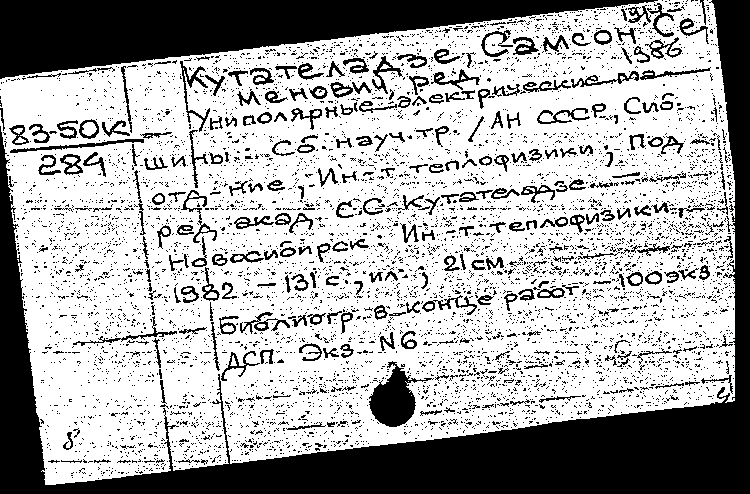 Кутателадзе, Самсон Се
1986
менович, ред.
83-50К
284
Униполярные электрические ма-
шины : Сб. науч. тр. / АН СССР, Сиб.
отд-ние, Ин-т теплофизики ; Под
ред. акад. С.С. Кутателадзе. —
Новосибирск : Ин-т теплофизики,
1982 - 131 с., ил. ; 21 см
Библиогр. в конце работ. - 100 экз
ДСП. Экз N6